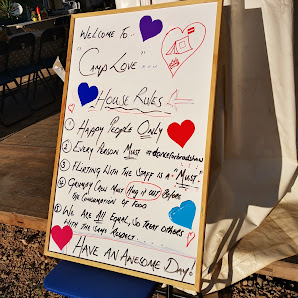 Welcome To..
"Camp Love"....
House Rules
① Happy People Only
② Every Person Must #danceforbradshaw
③ Flirting With The Staff is a "Must"
④ Grumpy Crew Must Hug it out Before
The Consumption of Food
⑤ We Are All Equal, So Treat Others
With the Same Respect.....
Have An Awesome Day!